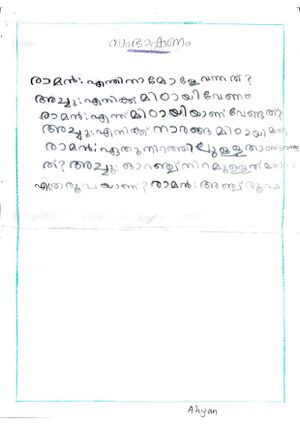 സംഭാഷണം
രാമൻ: എന്തിനാ മോളേ വന്നത്?
അച്ചു: എനിക്ക് മിഠായി വേണം
രാമൻ: എന്ത് മിഠായിയാണ് വേണ്ടത്?
അച്ചു: എനിക്ക് നാരങ്ങ മിഠായി മതി
രാമൻ: ഏതു നിറത്തിലുള്ളതാണ് വേണ്ട
ത്? അച്ചു: ഓറഞ്ച് നിറമുള്ളത് മതി
എത്ര രൂപയാണ്? രാമൻ: അഞ്ച് രൂപ
Ahyan